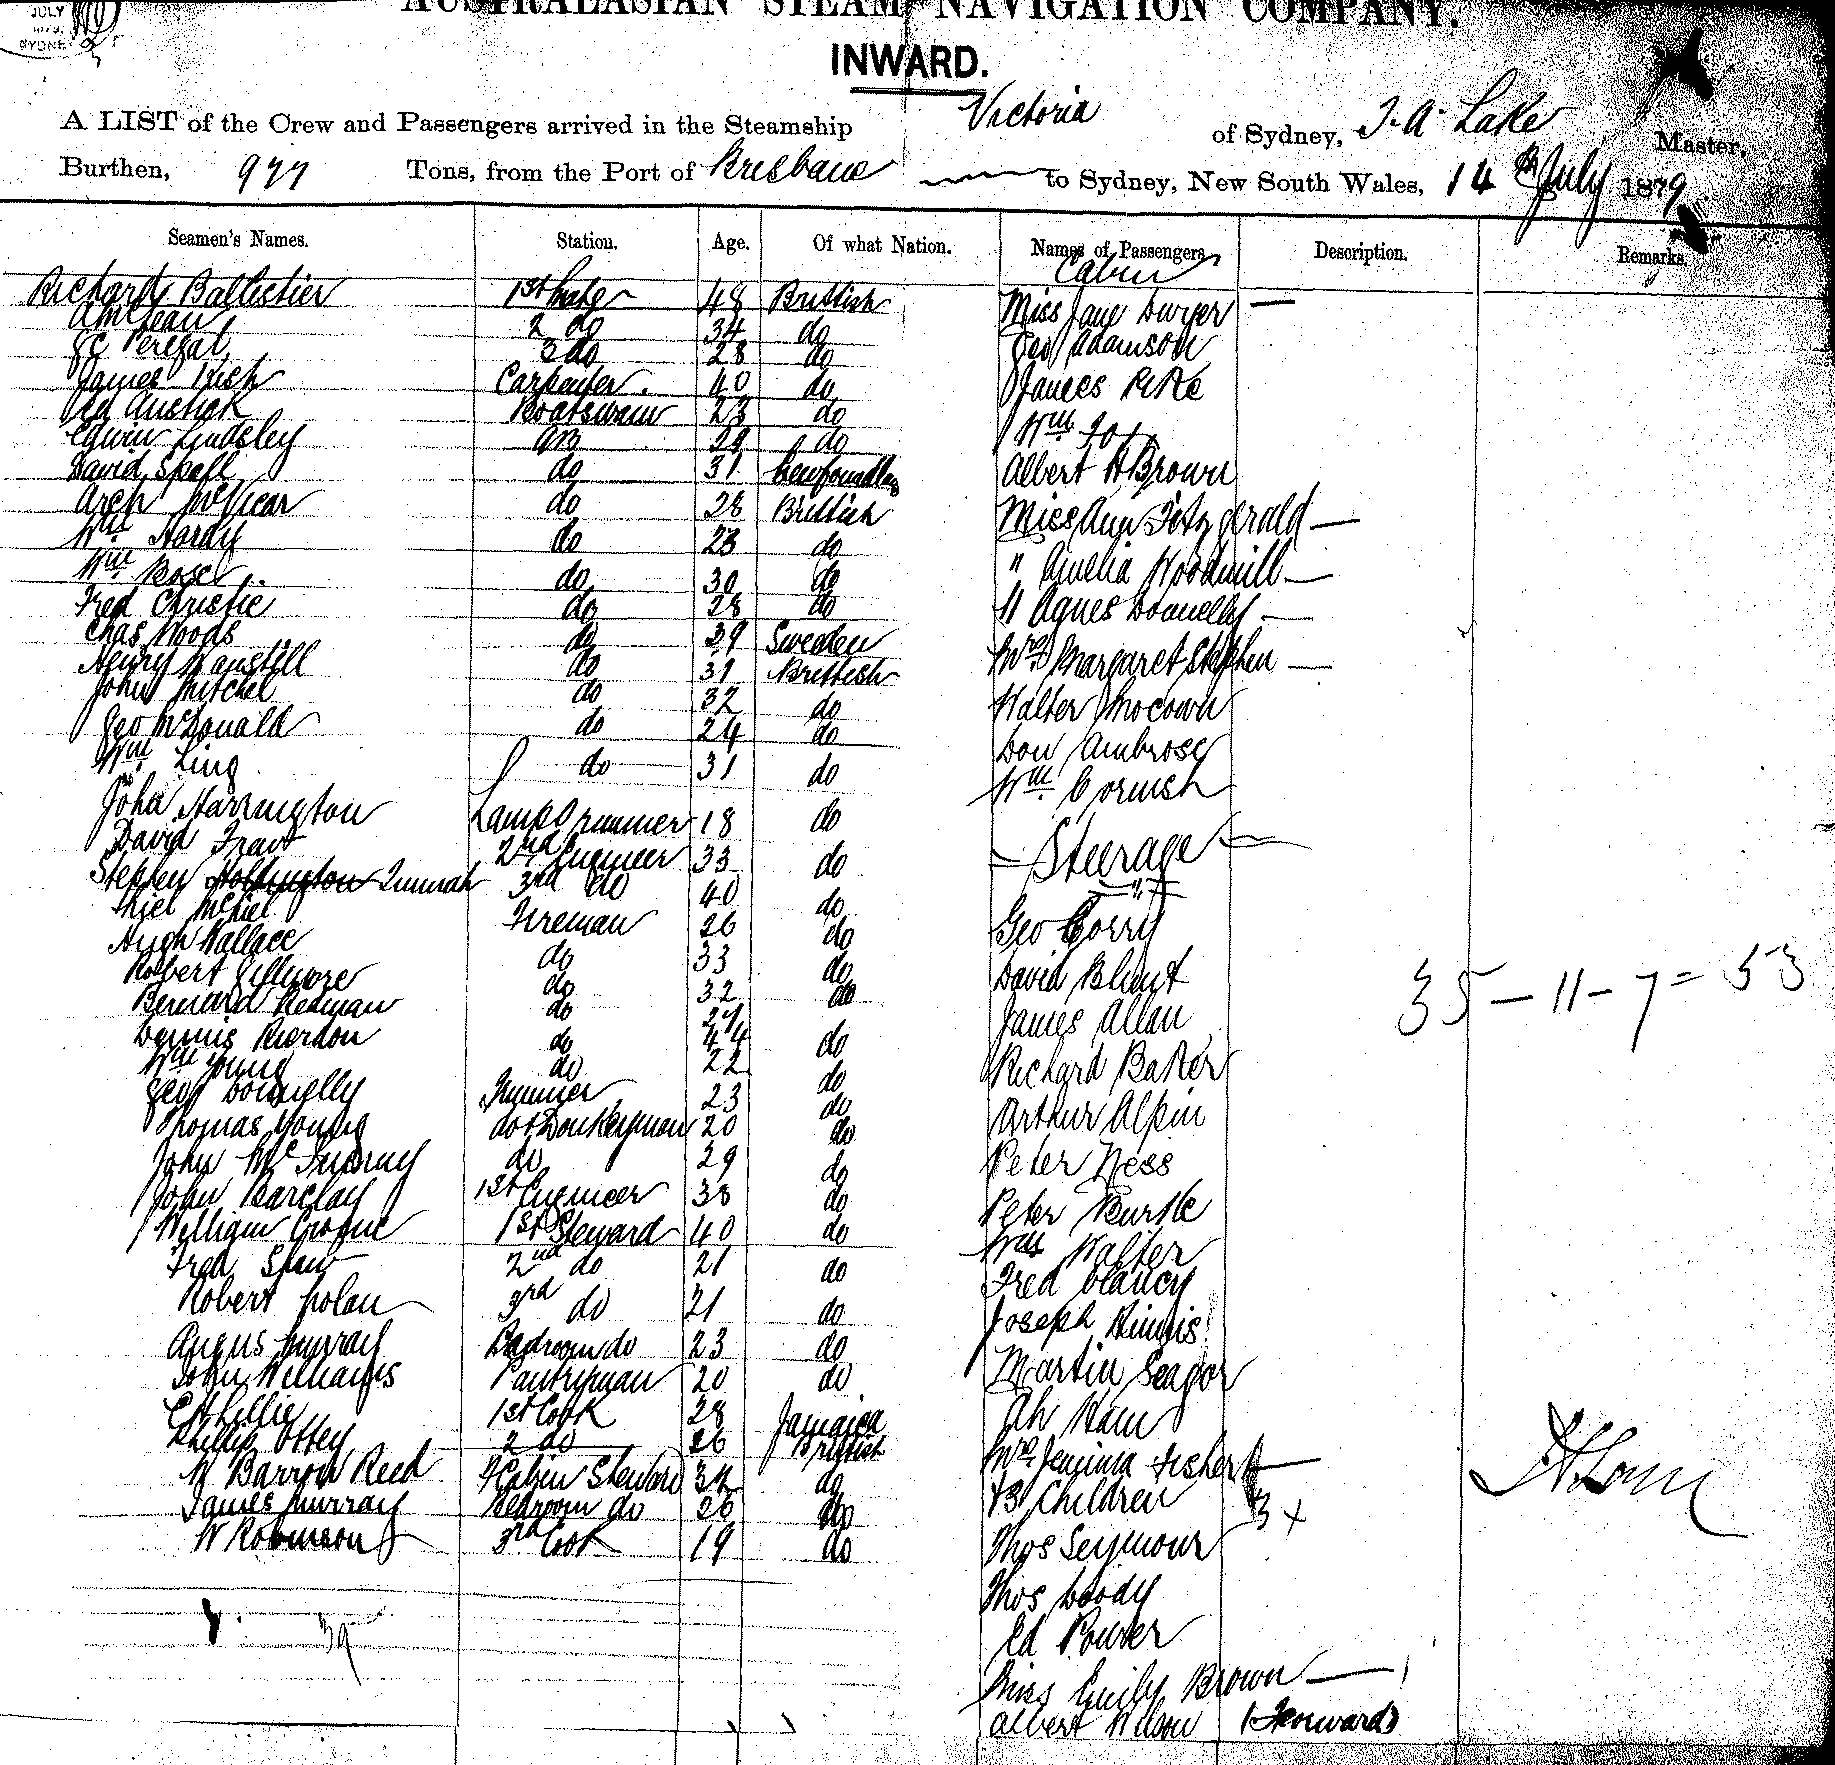 JULY
SYDNEY
AUSTRALASIAN STEAM NAVIGATION COMPANY.
INWARD.
A LIST of the Crew and Passengers arrived in the Steamship Victoria of Sydney, J. A. Lake Master,
Burthen, 977 Tons, from the Port of Brisbane to Sydney, New South Wales, 14th July 1879
Seamen's Names. Station. Age. Of what Nation. Names of Passengers Description. Remarks
Cabin
Richard Ballistier 1st Mate 48 British Miss Jane Dwyer —
A McLean 2 do 34 do Geo Adamson
3 do 28 do
James Kish Carpenter. 40 do James Pike
Boatswain 23 do Wm Fox
Edwin Lindsley AB 29 do
David Spall do 31 Newfoundland Albert H Brown
Arch McVicar do 28 British Miss Ann Fitzgerald —
Wm Hardy do 23 do
Wm Rose do 30 do " Amelia Woodmill —
Fred Christie do 28 do " Agnes Donnelly —
Chas Woods do 29 Sweden
Henry do 31 British Mrs Margaret Stephen —
John Mitchel do 32 do Walter
Geo McDonald do 24 do Don Ambrose
Wm Ling do 31 do Wm Cornish
John Harrington Lamp Trimmer 18 do
David 2nd Engineer 33 do — Steerage —
Stephen 3rd do 40 do
McNiel Fireman 26 do Geo Corry
Hugh Wallace do 33 do
Robert Gillmore do 32 do David Blunt
Bernard Redman do 27 James Allan
Dennis Riordon do 44 do
Wm Young do 22 do Richard Baker
Geo Donnelly Trimmer 23 do
Thomas Young do & Donkeyman 20 do Arthur Alpin
John do 29 do Peter Ness
John Barclay 1st Engineer 38 do
William 1st Steward 40 do Peter Burke
Fred Shaw 2nd do 21 do Wm Walter
Fred Clancy
Robert Nolan 3rd do 21 do Joseph
Angus Murray Bedroom do 23 do
John Williams Pantryman 20 do Martin Seagor
C H Lillie 1st Cook 28 Jamaica Ah Ham
Phillip Ottey 2 do 26 British Mrs Jemima Fisher —
W Barron Reed F Cabin Steward 34 do
James Murray Bedroom do 26 do & 3 Children 3 +
W Robinson 3rd Cook 19 do Thos Seymour
Thos Doody
39
Ed Power
Miss Emily Brown — 1
Albert Wilson (Forward)
35 – 11 – 7 = 53